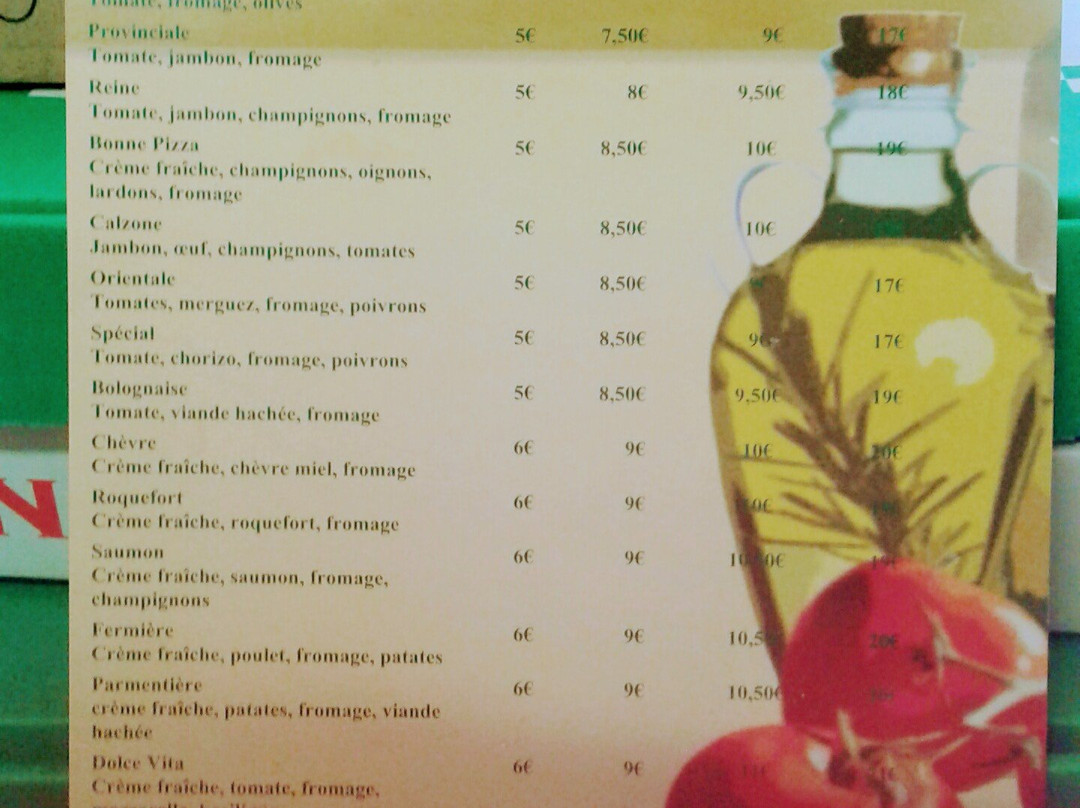 Tomate, fromage, olives
Provinciale 5€ 7,50€ 9€ 17€
Tomate, jambon, fromage
Reine 5€ 8€ 9,50€ 18€
Tomate, jambon, champignons, fromage
Bonne Pizza 5€ 8,50€ 10€ 19€
Crème fraîche, champignons, oignons,
lardons, fromage
Calzone 5€ 8,50€ 10€
Jambon, œuf, champignons, tomates
Orientale 5€ 8,50€ 17€
Tomates, merguez, fromage, poivrons
Spécial 5€ 8,50€ 9€ 17€
Tomate, chorizo, fromage, poivrons
Bolognaise 5€ 8,50€ 9,50€ 19€
Tomate, viande hachée, fromage
Chèvre 6€ 9€ 10€ 20€
Crème fraîche, chèvre miel, fromage
Roquefort 6€ 9€ 10€
Crème fraîche, roquefort, fromage
Saumon 6€ 9€ 10,50€ 19€
Crème fraîche, saumon, fromage,
champignons
Fermière 6€ 9€ 20€
Crème fraîche, poulet, fromage, patates
Parmentière 6€ 9€ 10,50€
crème fraîche, patates, fromage, viande
hachée
Dolce Vita 6€ 9€
Crème fraîche, tomate, fromage,
N